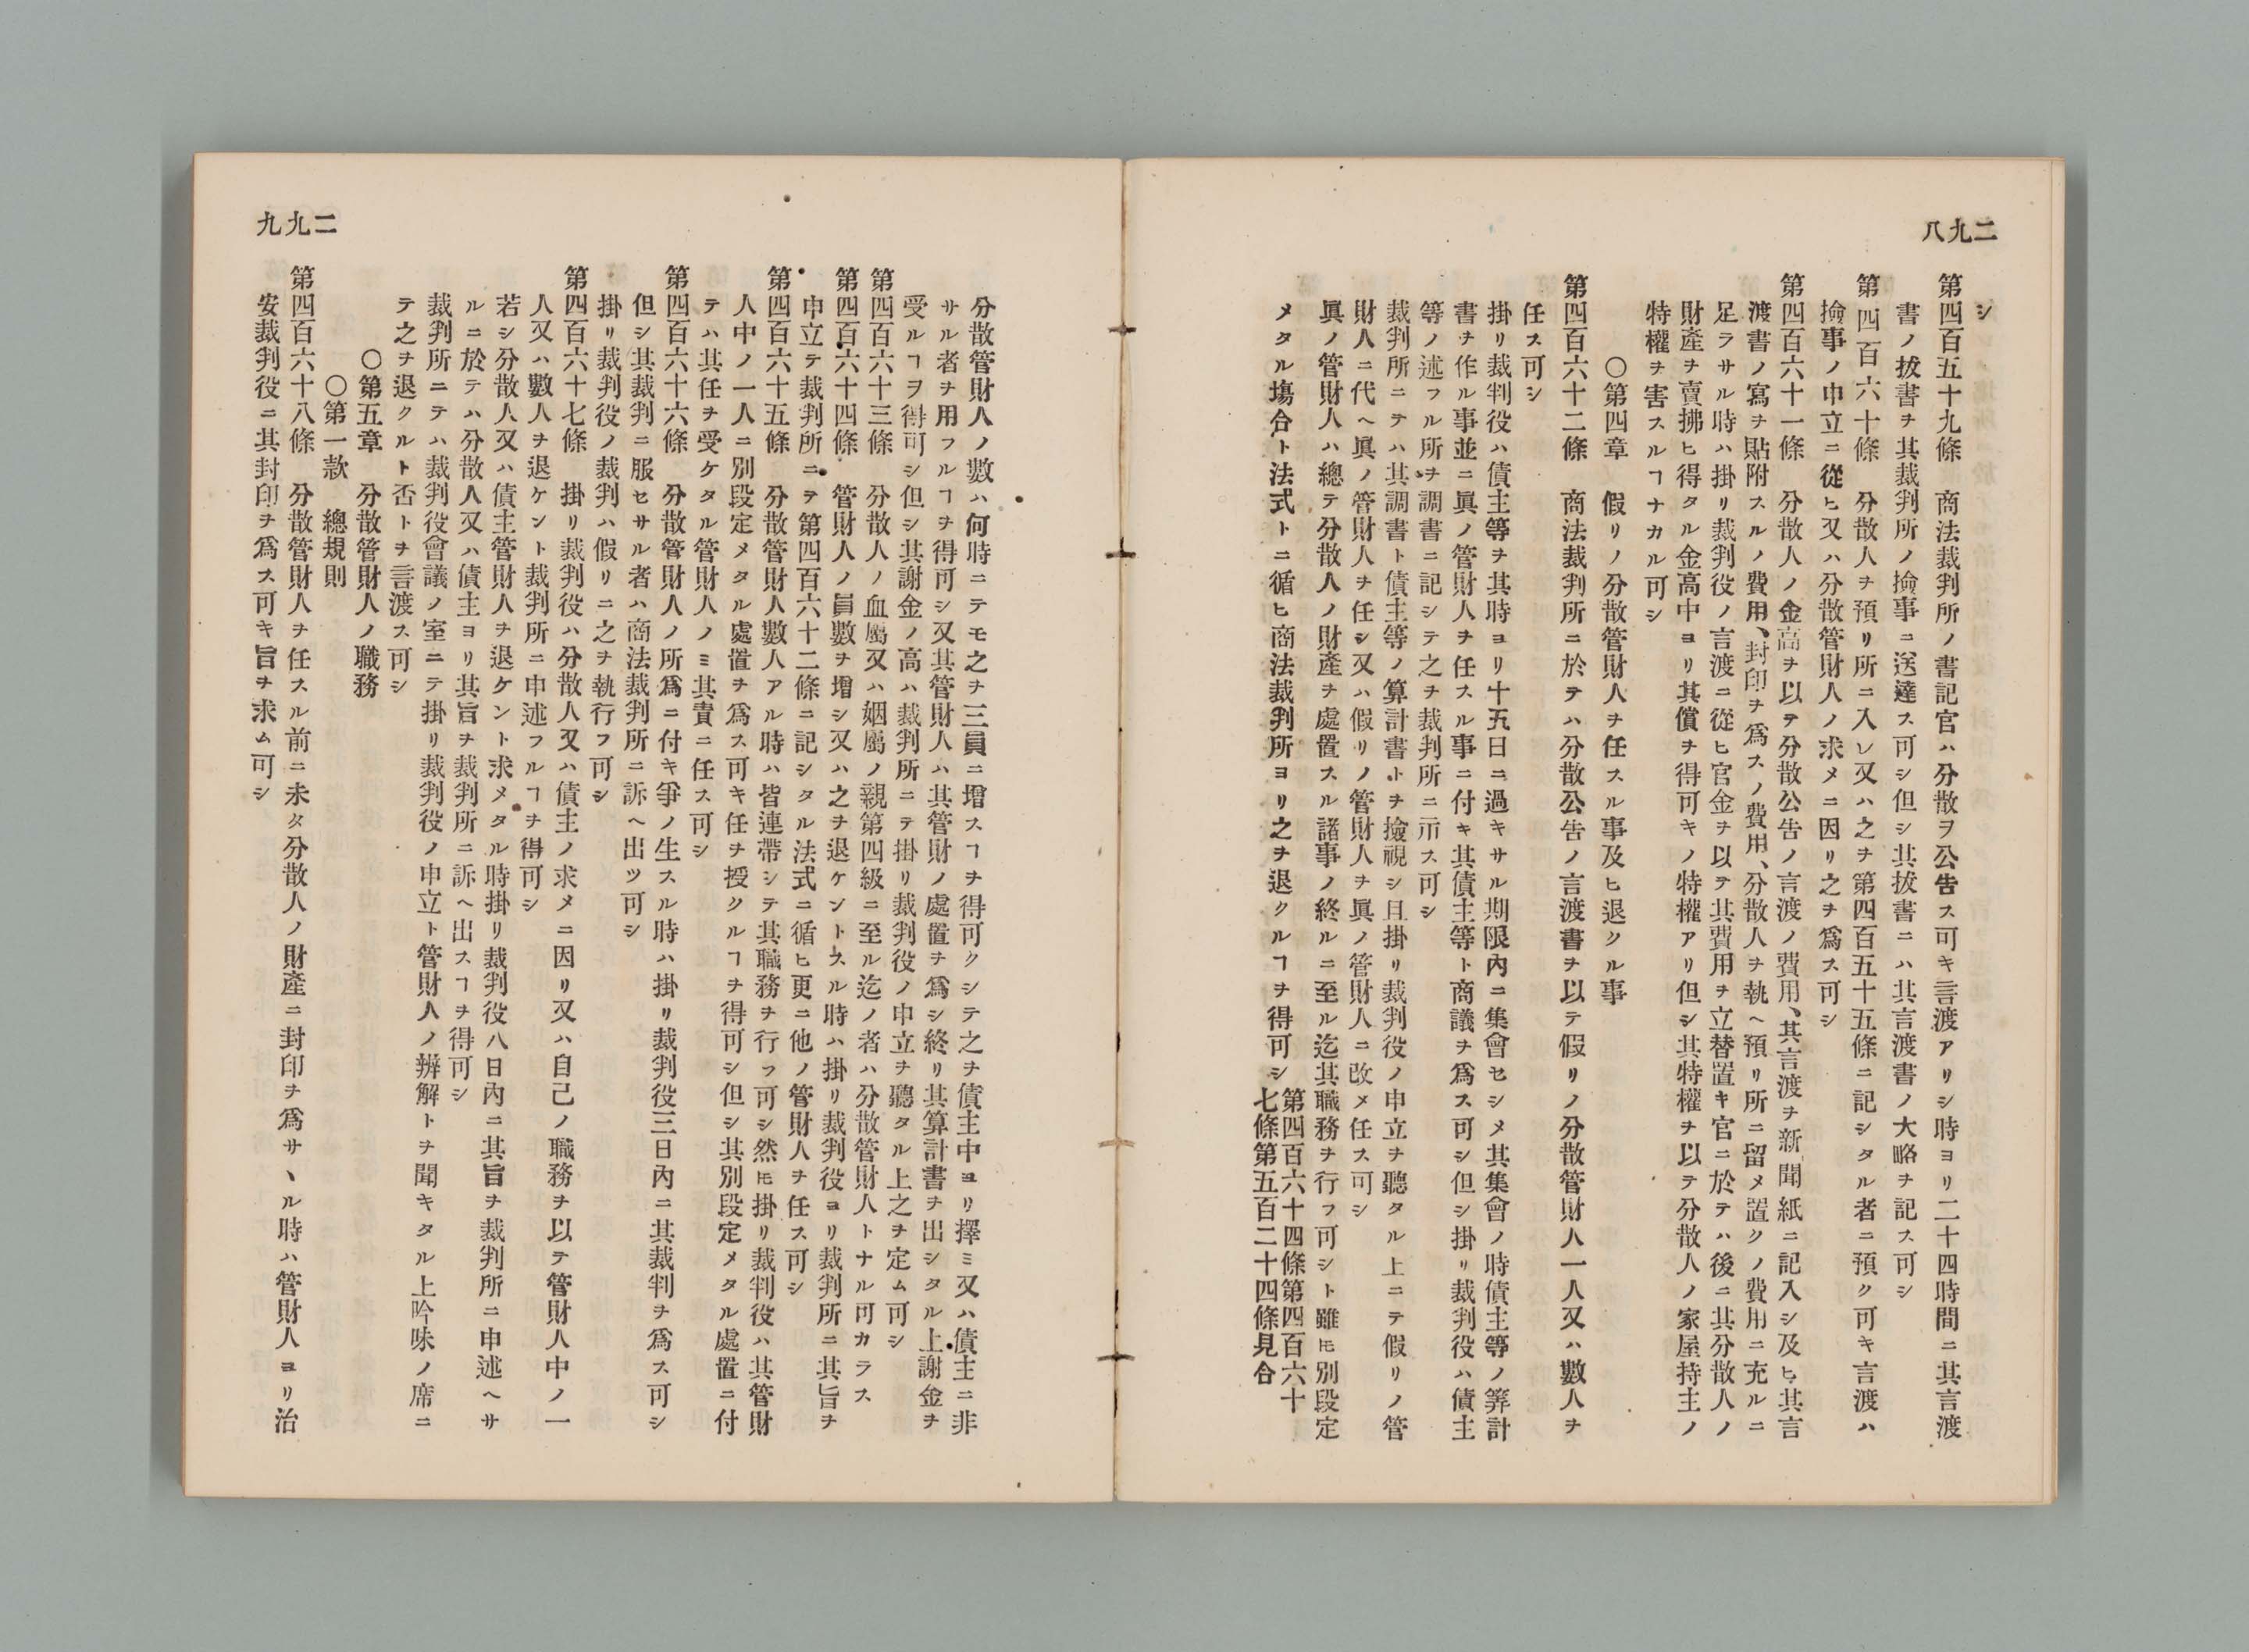 二九八
シ
第四百五十九條　商法裁判所ノ書記官ハ分散ヲ公告ス可キ言渡アリシ時ヨリ二十四時間ニ其言渡
書ノ拔書ヲ其裁判所ノ撿事ニ送達ス可シ但シ其拔書ニハ其言渡書ノ大略ヲ記ス可シ
第四百六十條　分散人ヲ預リ所ニ入レ又ハ之ヲ第四百五十五條ニ記シタル者ニ預ク可キ言渡ハ
撿事ノ申立ニ從ヒ又ハ分散管財人ノ求メニ因リ之ヲ爲ス可シ
第四百六十一條　分散人ノ金高ヲ以テ分散公告ノ言渡ノ費用、其言渡ヲ新聞紙ニ記入シ及ヒ其言
渡書ノ寫ヲ貼附スルノ費用、封印ヲ爲スノ費用、分散人ヲ執ヘ預リ所ニ留メ置クノ費用ニ充ルニ
足ラサル時ハ掛リ裁判役ノ言渡ニ從ヒ官金ヲ以テ其費用ヲ立替置キ官ニ於テハ後ニ其分散人ノ
財產ヲ賣拂ヒ得タル金高中ヨリ其償ヲ得可キノ特權アリ但シ其特權ヲ以テ分散人ノ家屋持主ノ
特權ヲ害スルヿナカル可シ
〇第四章　假リノ分散管財人ヲ任スル事及ヒ退クル事
第四百六十二條　商法裁判所ニ於テハ分散公告ノ言渡書ヲ以テ假リノ分散管財人一人又ハ數人ヲ
任ス可シ
掛リ裁判役ハ債主等ヲ其時ヨリ十五日ニ過キサル期限內ニ集會セシメ其集會ノ時債主等ノ筭計
書ヲ作ル事並ニ眞ノ管財人ヲ任スル事ニ付キ其債主等ト商議ヲ爲ス可シ但シ掛リ裁判役ハ債主
等ノ述フル所ヲ調書ニ記シテ之ヲ裁判所ニ示ス可シ
裁判所ニテハ其調書ト債主等ノ算計書トヲ撿視シ且掛リ裁判役ノ申立ヲ聽タル上ニテ假リノ管
財人ニ代ヘ眞ノ管財人ヲ任シ又ハ假リノ管財人ヲ眞ノ管財人ニ改メ任ス可シ
眞ノ管財人ハ總テ分散人ノ財產ヲ處置スル諸事ノ終ルニ至ル迄其職務ヲ行フ可シト雖ヒ別段定
メタル塲合ト法式トニ循ヒ商法裁判所ヨリ之ヲ退クルヿヲ得可シ第四百六十四條第四百六十
七條第五百二十四條見合
二九九
分散管財人ノ數ハ何時ニテモ之ヲ三員ニ增スヿヲ得可クシテ之ヲ債主中ヨリ擇ミ又ハ債主ニ非
サル者ヲ用フルヿヲ得可シ又其管財人ハ其管財ノ處置ヲ爲シ終リ其算計書ヲ出シタル上謝金ヲ
受ルヿヲ得可シ但シ其謝金ノ高ハ裁判所ニテ掛リ裁判役ノ申立ヲ聽タル上之ヲ定ム可シ
第四百六十三條　分散人ノ血屬又ハ姻屬ノ親第四級ニ至ル迄ノ者ハ分散管財人トナル可カラス
第四百六十四條　管財人ノ員數ヲ增シ又ハ之ヲ退ケントスル時ハ掛リ裁判役ヨリ裁判所ニ其旨ヲ
申立テ裁判所ニテ第四百六十二條ニ記シタル法式ニ循ヒ更ニ他ノ管財人ヲ任ス可シ
第四百六十五條　分散管財人數人アル時ハ皆連帶シテ其職務ヲ行フ可シ然ヒ掛リ裁判役ハ其管財
人中ノ一人ニ別段定メタル處置ヲ爲ス可キ任ヲ授クルヿヲ得可シ但シ其別段定メタル處置ニ付
テハ其任ヲ受ケタル管財人ノミ其責ニ任ス可シ
第四百六十六條　分散管財人ノ所爲ニ付キ爭ノ生スル時ハ掛リ裁判役三日內ニ其裁判ヲ爲ス可シ
但シ其裁判ニ服セサル者ハ商法裁判所ニ訴ヘ出ツ可シ
掛リ裁判役ノ裁判ハ假リニ之ヲ執行フ可シ
第四百六十七條　掛リ裁判役ハ分散人又ハ債主ノ求メニ因リ又ハ自己ノ職務ヲ以テ管財人中ノ一
人又ハ數人ヲ退ケント裁判所ニ申述フルヿヲ得可シ
若シ分散人又ハ債主管財人ヲ退ケント求メタル時掛リ裁判役八日內ニ其旨ヲ裁判所ニ申述ヘサ
ルニ於テハ分散人又ハ債主ヨリ其旨ヲ裁判所ニ訴ヘ出スヿヲ得可シ
裁判所ニテハ裁判役會議ノ室ニテ掛リ裁判役ノ申立ト管財人ノ辨解トヲ聞キタル上吟味ノ席ニ
テ之ヲ退クルト否トヲ言渡ス可シ
〇第五章　分散管財人ノ職務
〇第一款　總規則
第四百六十八條　分散管財人ヲ任スル前ニ未タ分散人ノ財產ニ封印ヲ爲サヽル時ハ管財人ヨリ治
安裁判役ニ其封印ヲ爲ス可キ旨ヲ求ム可シ